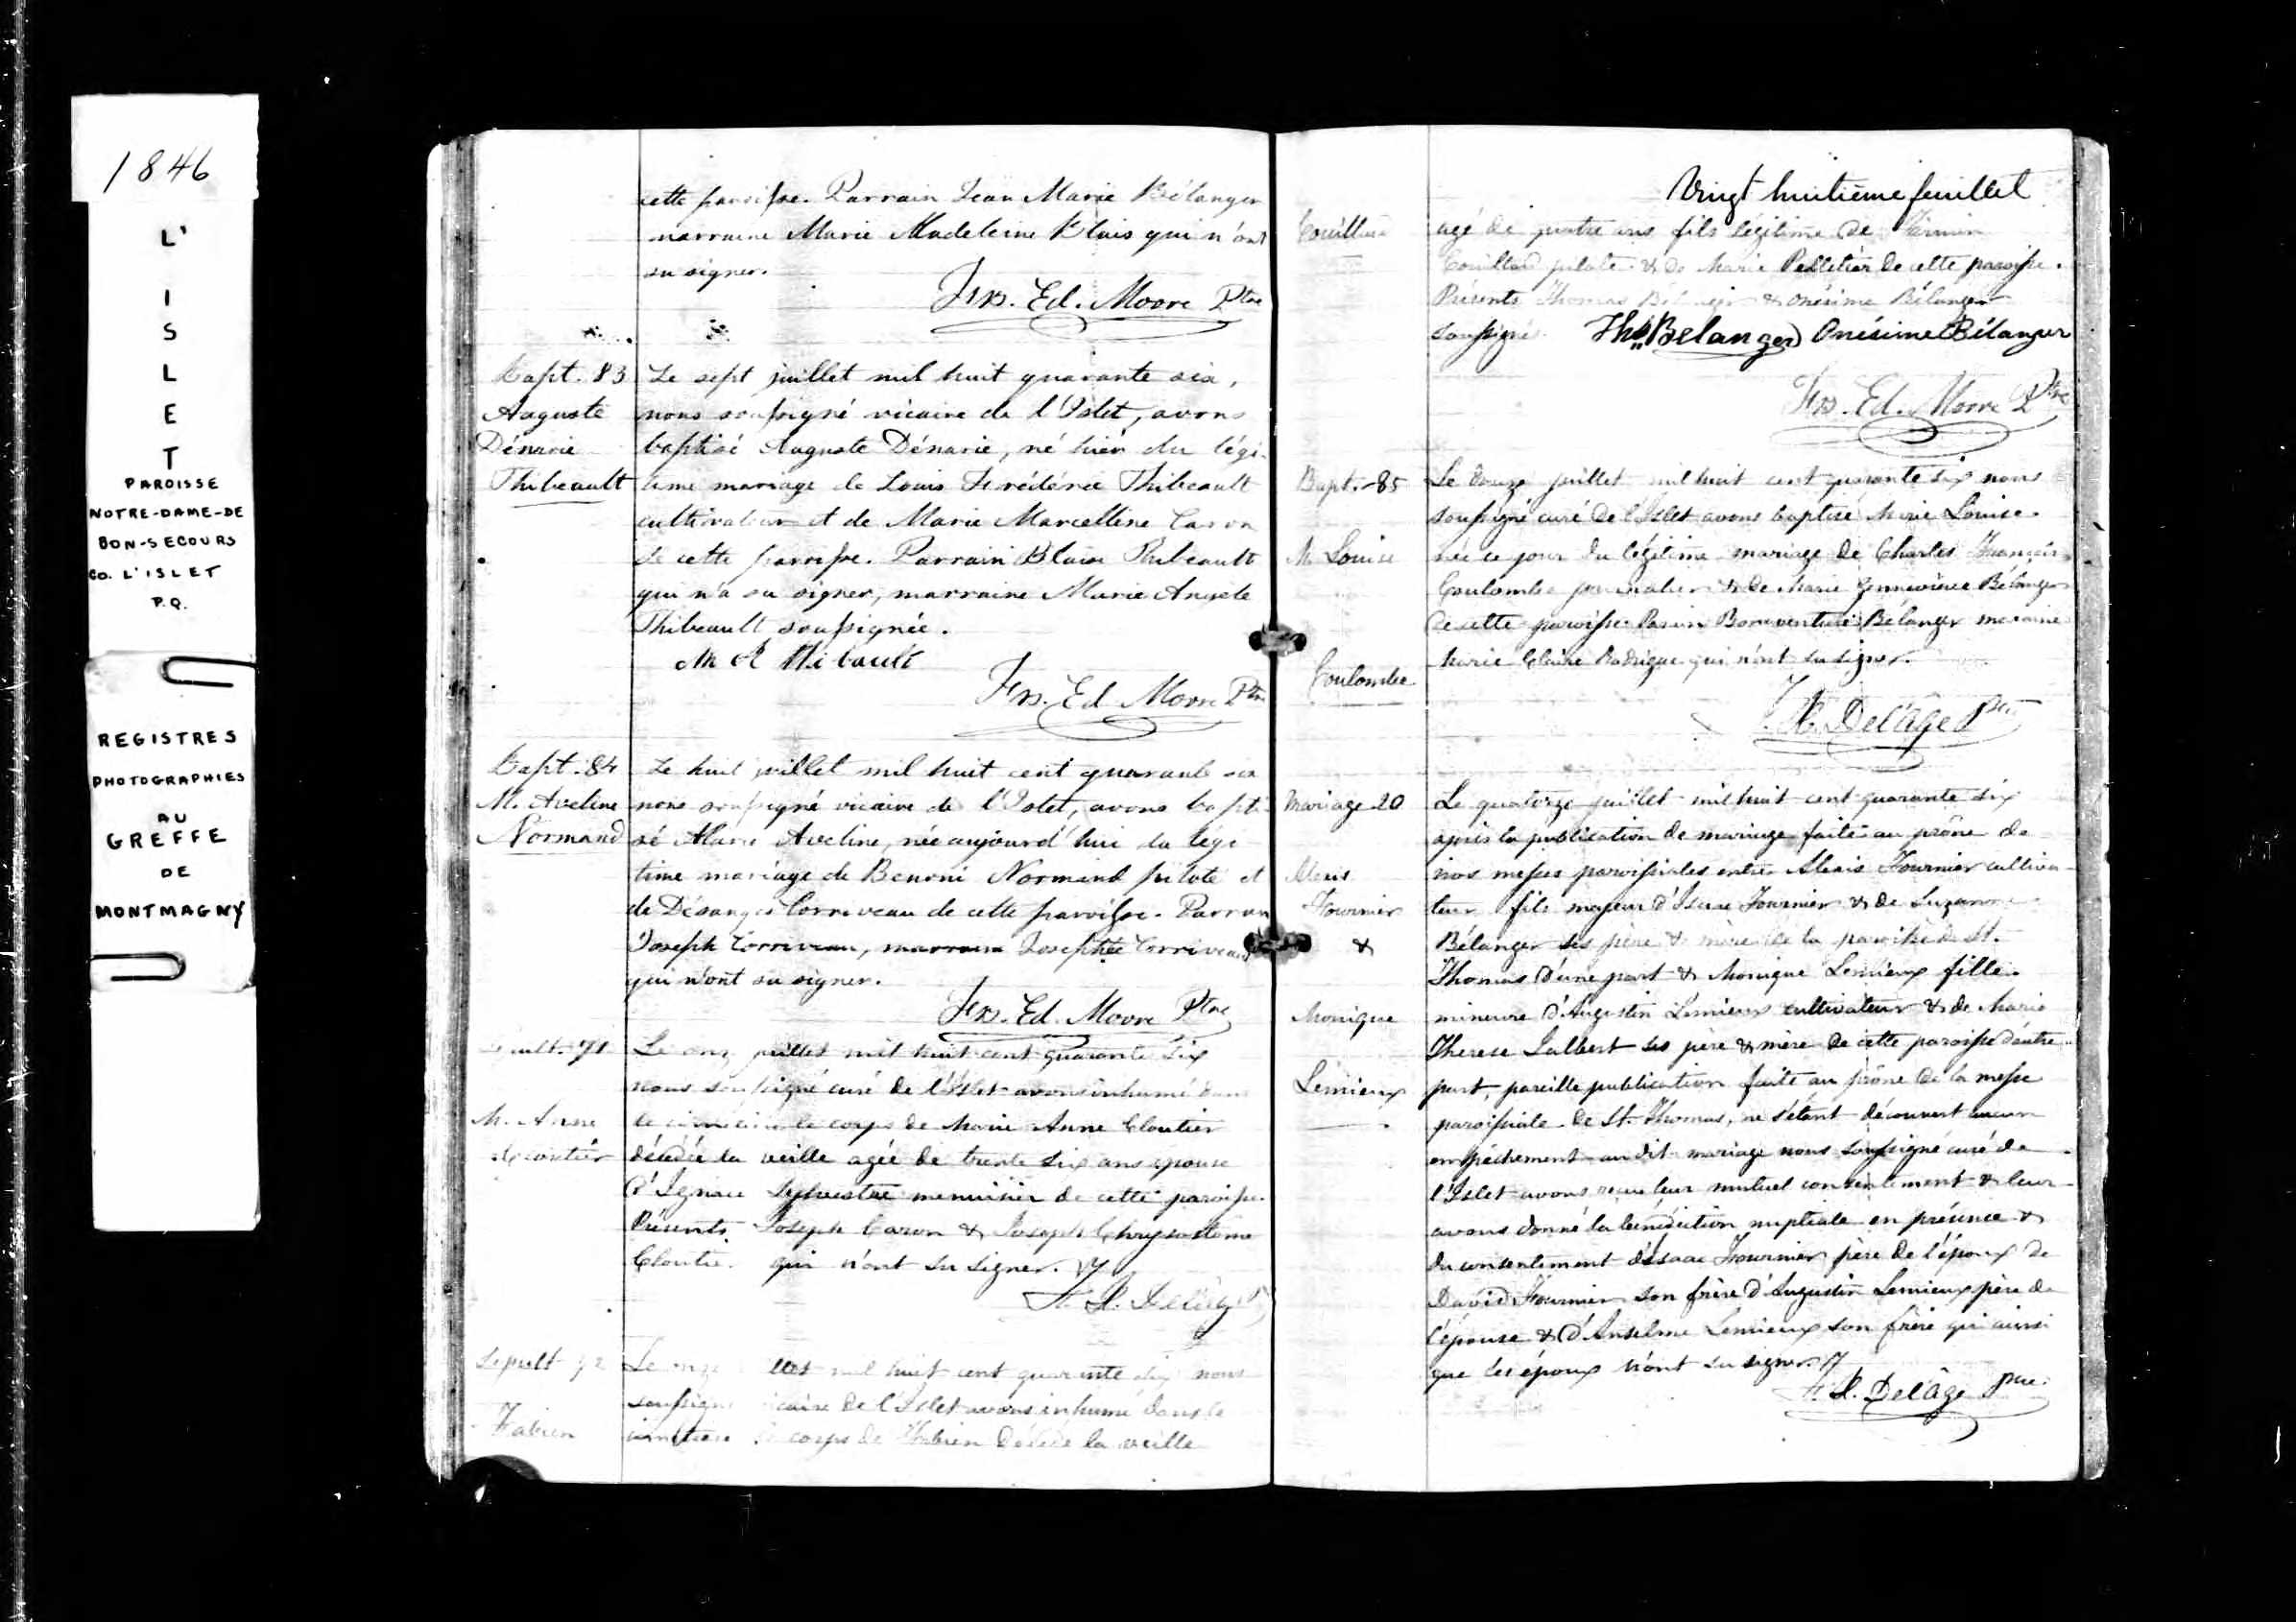 1846
L'
I
S
L
E
T
PAROISSE
NOTRE-DAME-DE
BON-SECOURS
CO. L'ISLET
P.Q.
REGISTRES
PHOTOGRAPHIES
AU
GREFFE
DE
MONTMAGNY
cette paroisse. Parrain Jean Marie Bélanger
marraine Marie Madeleine Blais qui n'ont
su signer.
Frs. Ed. Moore Ptre
Bapt. 83
Auguste
Dénarie
Thibeault
Le sept juillet mil huit quarante six,
nous soussigné vicaire de l'Islet, avons
baptisé Auguste Dénarie, né hier du légi-
time mariage de Louis Frédéric Thibeault
cultivateur et de Marie Marcelline Caron
de cette paroisse. Parrain Blaise Thibeault
qui n'a su signer, marraine Marie Angèle
Thibeault soussignée.
M A Thibault
Frs. Ed Moore Ptre
Bapt. 84
M. Aveline
Normand
Le huit juillet mil huit cent quarante six
nous soussigné vicaire de l'Islet, avons bapti-
sé Marie Aveline, née aujourd'hui du légi-
time mariage de Benoni Normand pilote et
de Désanges Corriveau de cette paroisse. Parrain
Joseph Corriveau, marraine Josephte Corriveau
qui n'ont su signer.
Frs. Ed. Moore Ptre
Sepult. 71
M. Anne
Cloutier
Le onze juillet mil huit cent quarante six
nous soussigné curé de l'Islet avons inhumé dans
le cimetière le corps de Marie Anne Cloutier
décédée la veille agée de trente six ans epouse
d'Ignace Sylvestre menuisier de cette paroisse.
Présents Joseph Caron & Joseph Chrysostôme
Cloutier qui n'ont su signer.
F. X. Delâge
Sepult 72
Fabien
Le onze juillet mil huit cent quarante six nous
soussigné vicaire de l'Islet avons inhumé dans le
cimetiere le corps de Fabien décédé la veille
Vingt huitième feuillet
Couillard
agé de quatre ans fils légitime de Firmin
Couillard pilote & de Marie Pelletier de cette paroisse.
Présents Thomas Bélanger & Onésime Bélanger
soussignés. Ths Belanger Onésime Bélanger
Frs. Ed. Moore Ptre
Bapt. 85
M. Louise
Coulombe
Le douze juillet mil huit cent quarante six nous
soussigné curé de l'Islet avons baptisé Marie Louise
née ce jour du légitime mariage de Charles François
Coulombe journalier & de Marie Bélanger
de cette paroisse Parain Bonaventure Bélanger maraine
Marie Claire Rodrigue qui n'ont su signer.
F. X. Delâge Ptre
Mariage 20
Alexis
Fournier
&
Monique
Lemieux
Le quatorze juillet mil huit cent quarante six
après la publication de mariage faite au prône de
nos messes paroissiales entre Alexis Fournier cultiva-
teur fils majeur d'Isaac Fournier & de Suzanne
Bélanger ses père & mère de la paroisse de St.
Thomas d'une part & Monique Lemieux fille
mineure d'Augustin Lemieux cultivateur & de Marie
Therese Lalbert ses père & mère de cette paroisse d'autre
part, pareille publication faite au prône de la messe
paroissiale de St. Thomas, ne s'étant découvert aucun
empêchement au dit mariage nous soussigné curé de
l'Islet avons reçu leur mutuel consentement & leur
avons donné la bénédiction nuptiale en présence &
du consentement d'Isaac Fournier père de l'époux de
David Fournier son frère d'Augustin Lemieux père de
l'épouse & d'Anselme Lemieux son frère qui ainsi
que les époux n'ont su signer.
F. X. Delâge Ptre.